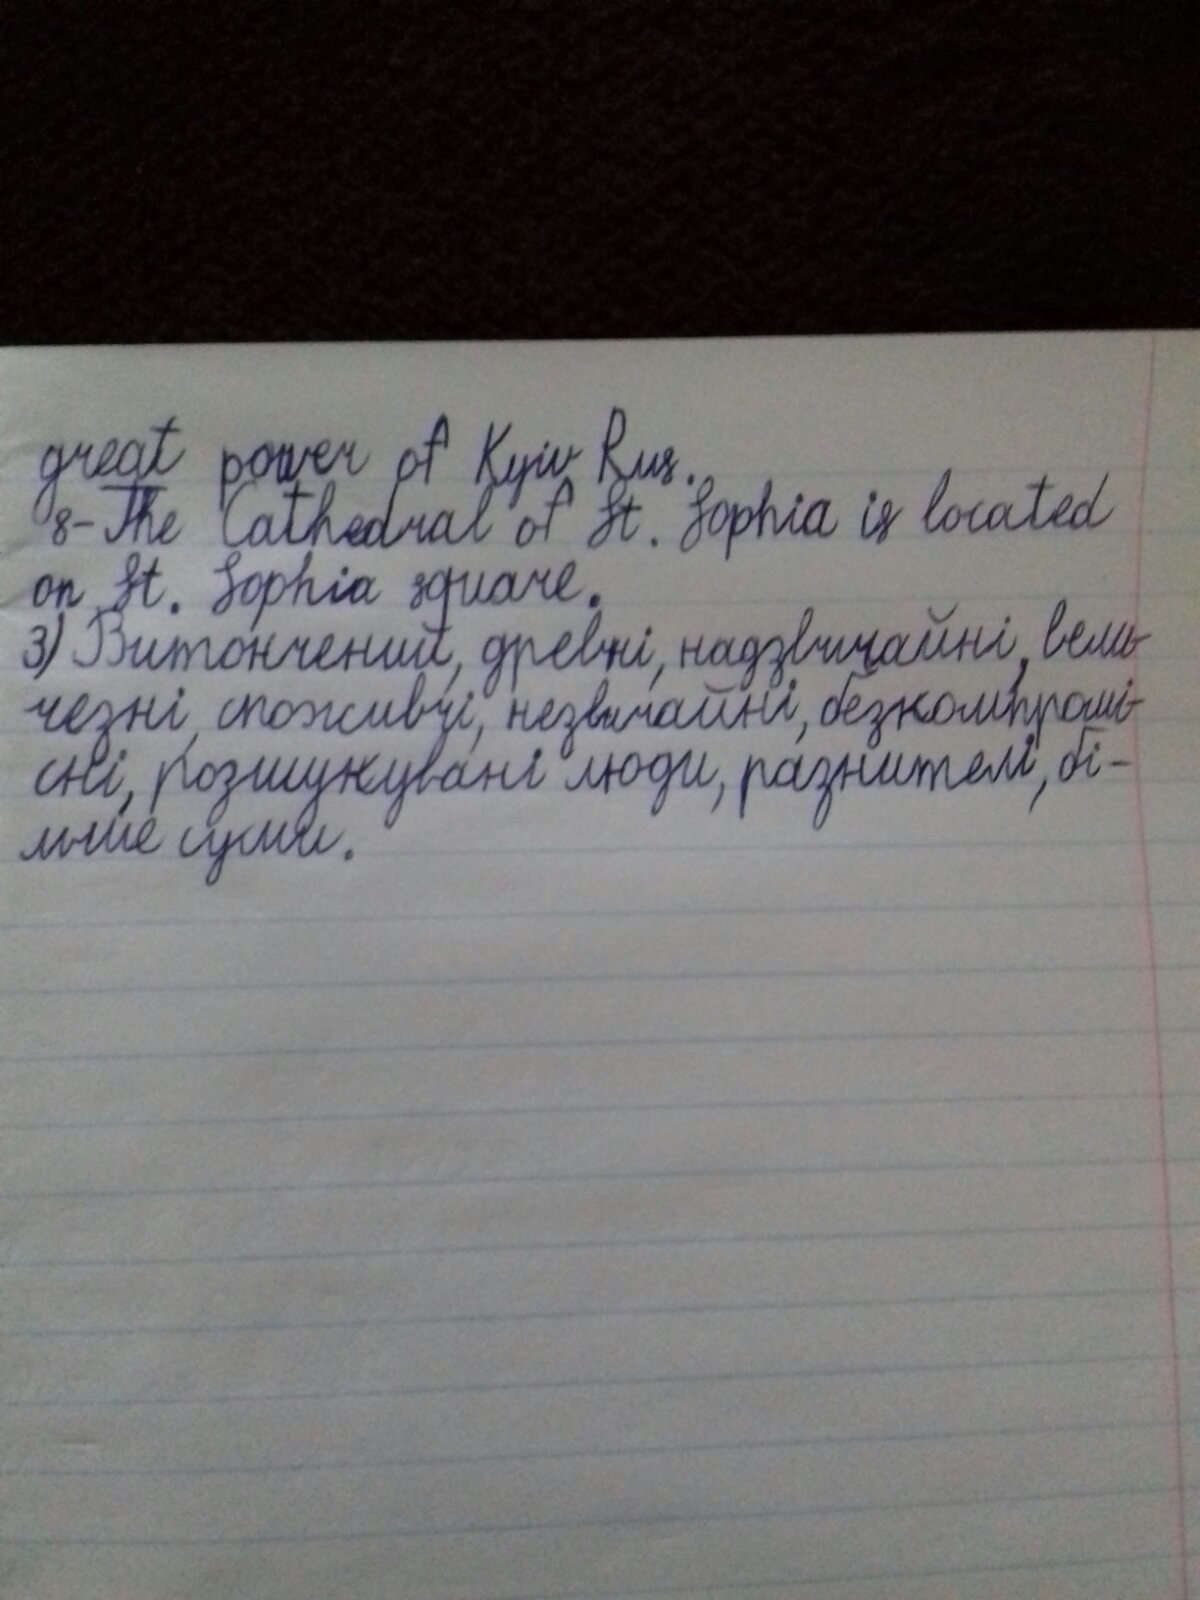 great power of Kyiv Rus.
8-The Cathedral of St. Sophia is located
on St. Sophia square.
3) Витончений, древні, надзвичайні, вели-
чезні, споживчі, незвичайні, безкомпромі-
сні, розшукувані люди, разнителі, бі-
льше суми.